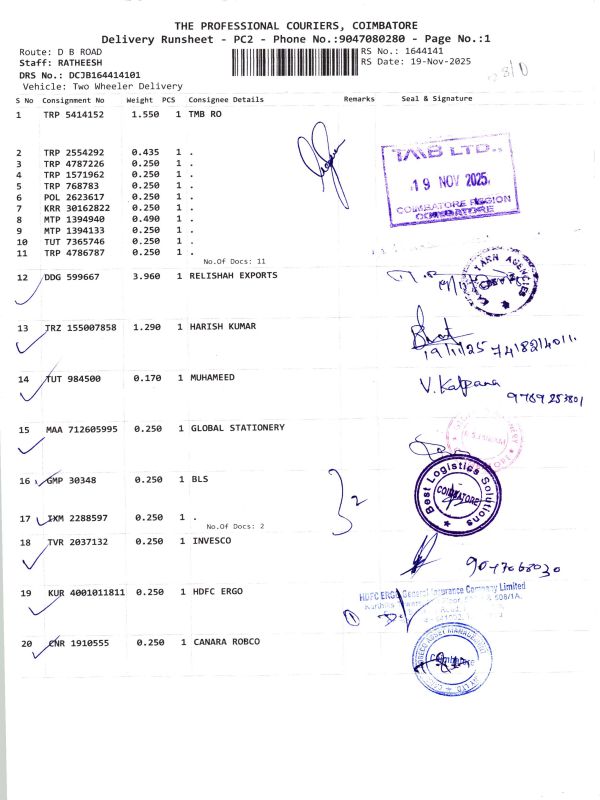 THE PROFESSIONAL COURIERS, COIMBATORE
Delivery Runsheet - PC2 - Phone No.:9047080280 - Page No.:1
Route: D B ROAD
RS No.: 1644141
Staff: RATHEESH
RS Date: 19-Nov-2025
DRS No.: DCJB164414101
Vehicle: Two Wheeler Delivery
S No Consignment No Weight PCS Consignee Details Remarks Seal & Signature
1 TRP 5414152 1.550 1 TMB RO
2 TRP 2554292 0.435 1 .
3 TRP 4787226 0.250 1 .
4 TRP 1571962 0.250 1 .
5 TRP 768783 0.250 1 .
6 POL 2623617 0.250 1 .
7 KRR 30162822 0.250 1 .
8 MTP 1394940 0.490 1 .
9 MTP 1394133 0.250 1 .
10 TUT 7365746 0.250 1 .
11 TRP 4786787 0.250 1 .
TMB LTD.,
19 NOV 2025
COIMBATORE REGION
COIMBATORE
No.Of Docs: 11
12 DDG 599667 3.960 1 RELISHAH EXPORTS
YARN AGENCIES
13 TRZ 155007858 1.290 1 HARISH KUMAR
19/11/25 7418214011
14 TUT 984500 0.170 1 MUHAMEED
V. Kalpana
9789253801
15 MAA 712605995 0.250 1 GLOBAL STATIONERY
16 GMP 30348 0.250 1 BLS
Best Logistics Solutions
COIMBATORE
32
17 IXM 2288597 0.250 1 .
No.Of Docs: 2
18 TVR 2037132 0.250 1 INVESCO
9047068030
19 KUR 4001011811 0.250 1 HDFC ERGO
HDFC ERGO General Insurance Company Limited
20 CNR 1910555 0.250 1 CANARA ROBCO